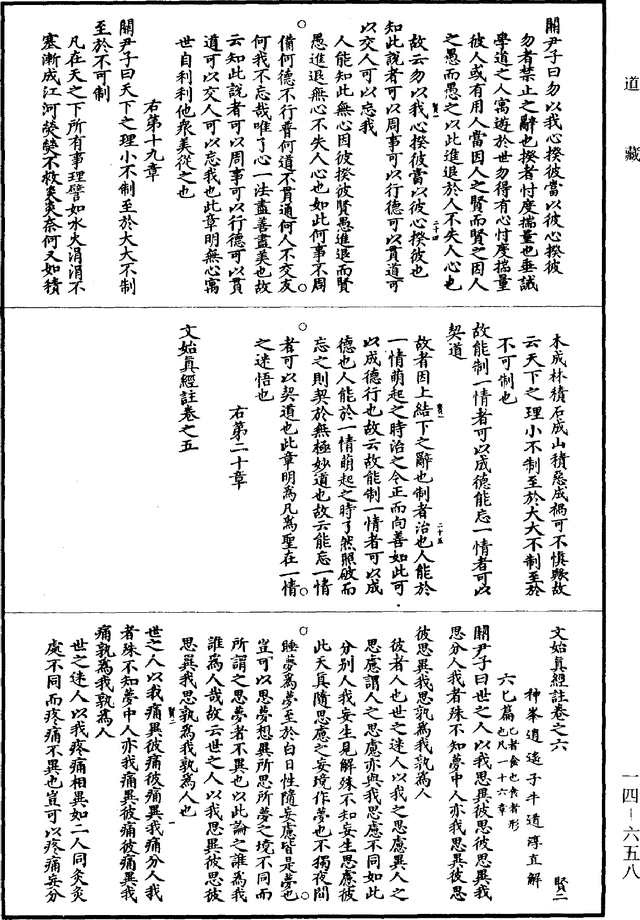 道藏
關尹子曰勿以我心揆彼當以彼心揆彼
勿者禁止之辭也揆者忖度揣量也垂誡
學道之人寓遊於世勿得有心忖度揣量
彼人或有用人當因人之賢而賢之因人
之愚而愚之以此進退於人不失人心也
故云勿以我心揆彼當以彼心揆彼也
知此說者可以周事可以行德可以貫道可
以交人可以忘我
人能知此無心因彼揆彼賢愚進退而賢
愚進退無心不失人心也如此何事不周
備何德不行普何道不貫通何人不交友
何我不忘哉唯了心一法盡善盡美也故
云知此說者可以周事可以行德可以貫
道可以交人可以忘我也此章明無心寓
世自利利他衆美從之也
右第十九章
關尹子曰天下之理小不制至於大大不制
至於不可制
凡在天之下所有事理譬如水火涓涓不
塞漸成江河熒熒不救炎炎奈何又如積
木成林積石成山積惡成禍可不慎歟故
云天下之理小不制至於大大不制至於
不可制也
故能制一情者可以成德能忘一情者可以
契道
故者因上結下之辭也制者治也人能於
一情萌起之時治之令正而向善如此可
以成德行也故云故能制一情者可以成
德也人能於一情萌起之時了然照破而
忘之則契於無極妙道也故云能忘一情
者可以契道也此章明爲凡爲聖在一情
之迷悟也
右第二十章
文始眞經註卷之五
文始眞經註卷之六
神峯逍遙子牛道淳直解
六匕篇 匕者食也食者形也凡一十六章
關尹子曰世之人以我思異彼思彼思異我
思分人我者殊不知夢中人亦我思異彼思
彼思異我思孰爲我孰爲人
彼者人也世之迷人以我之思慮異人之
思慮謂人之思慮亦與我思慮不同如此
分別人我妄生見解殊不知妄生思慮彼
此天真隨思慮之妄境作夢也不獨夜間
睡夢爲夢至於白日性隨妄慮皆是夢也
豈可以思夢想異所思所夢之境不同而
所謂之思夢者不異也以此論之誰爲我
誰爲人哉故云世之人以我思異彼思彼
思異我思孰爲我孰爲人也
世之人以我痛異彼痛彼痛異我痛分人我
者殊不知夢中人亦我痛異彼痛彼痛異我
痛孰爲我孰爲人
世之迷人以我疼痛相異如二人同灸灸
處不同而疼痛不異也豈可以疼痛妄分
賢一
二十四
賢一
二十五
賢二
賢二
一四－六五八